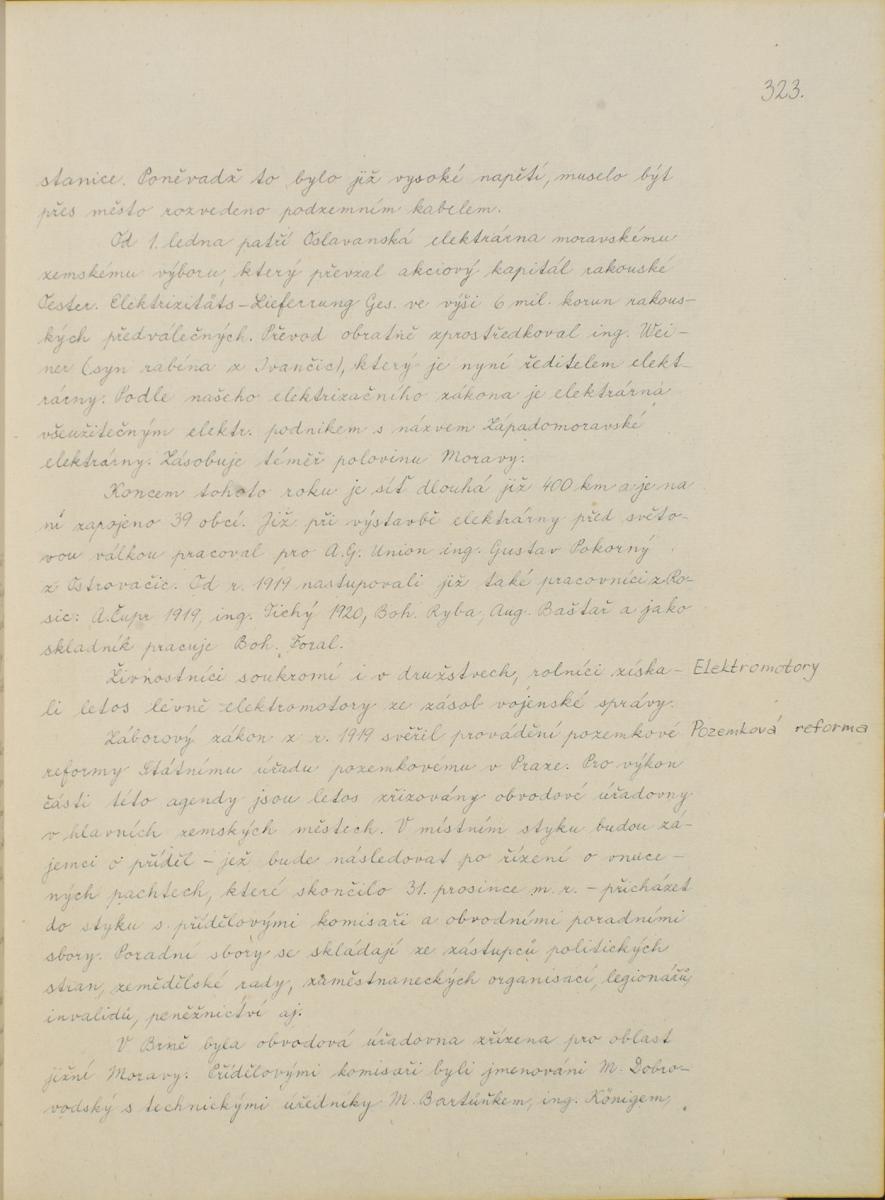 323.
stanice. Poněvadž to bylo již vysoké napětí, muselo být
přes město rozvedeno podzemním kabelem.
Od 1. ledna patří Oslavanská elektrárna moravskému
zemskému výboru, který převzal akciový kapitál rakouské
Oester. Elektrizitäts-Lieferrung Ges. ve výši 6 mil. korun rakous-
kých předválečných. Převod obratně zprostředkoval ing. Wei-
ner (syn rabína z Ivančic), který je nyní ředitelem elekt-
rárny. Podle našeho elektrizačního zákona je elektrárna
všeužitečným elektr. podnikem s názvem Západomoravské
elektrárny. Zásobuje téměř polovinu Moravy.
Koncem tohoto roku je síť dlouhá již 400 km a je na
ni zapojeno 39 obcí. Již při výstavbě elektrárny před světo-
vou válkou pracoval pro A.G. Union ing. Gustav Pokorný
z Ostrovačic. Od r. 1919 nastupovali již také pracovníci z Ro-
sic: A. Čupr 1919, ing. Tichý 1920, Boh. Ryba, Aug. Baštař a jako
skladník pracuje Boh. Foral.
Živnostníci soukromí i v družstvech, rolníci získa- Elektromotory
li letos levně elektromotory ze zásob vojenské správy.
Záborový zákon z r. 1919 svěřil provádění pozemkové Pozemková reforma
reformy Státnímu úřadu pozemkovému v Praze. Pro výkon
části této agendy jsou letos zřizovány obvodové úřadovny
v hlavních zemských městech. V místním styku budou zá-
jemci o příděl - jež bude následovat po řízení o vnuce-
ných pachtech, které skončilo 31. prosince m. r. - přicházet
do styku s přídělovými komisaři a obvodními poradními
sbory. Poradní sbory se skládají ze zástupců politických
stran, zemědělské rady, zaměstnaneckých organisací, legionářů,
invalidů, peněžnictví aj.
V Brně byla obvodová úřadovna zřízena pro oblast
jižní Moravy. Přídělovými komisaři byli jmenováni M. Dobro-
vodský s technickými úředníky M. Bartůňkem, ing. Königem,